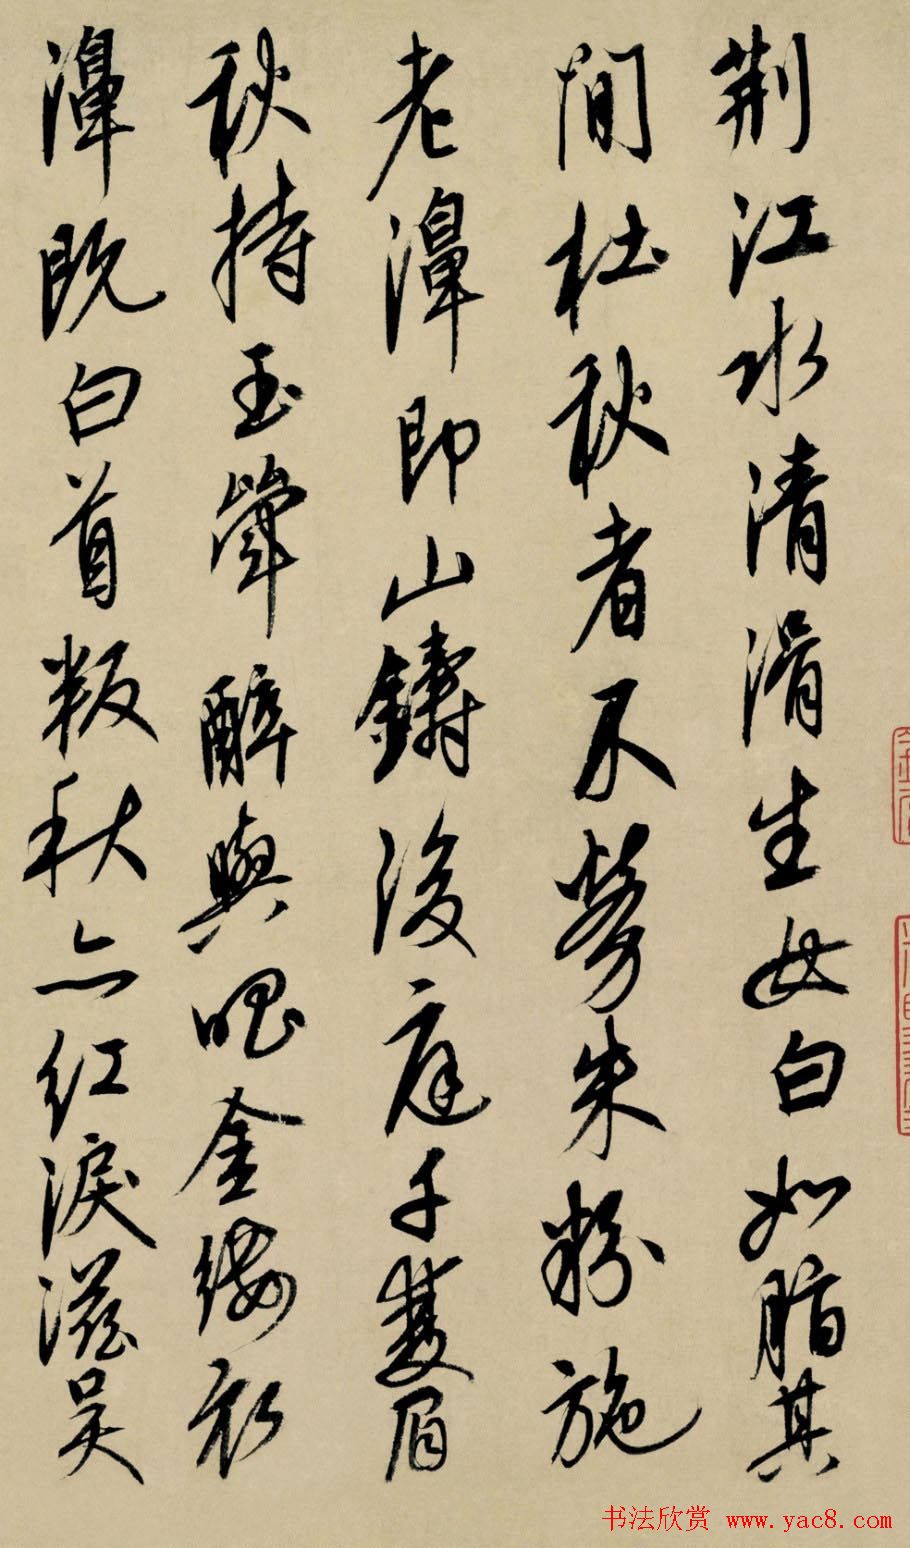 荆江水清滑生女白如脂其
間杜秋者不勞朱粉施
老濞即山鑄後庭千雙眉
秋持玉斝醉與唱金縷衣
濞既白首叛秋亦紅淚滋吳
书法欣赏 www.yac8.com